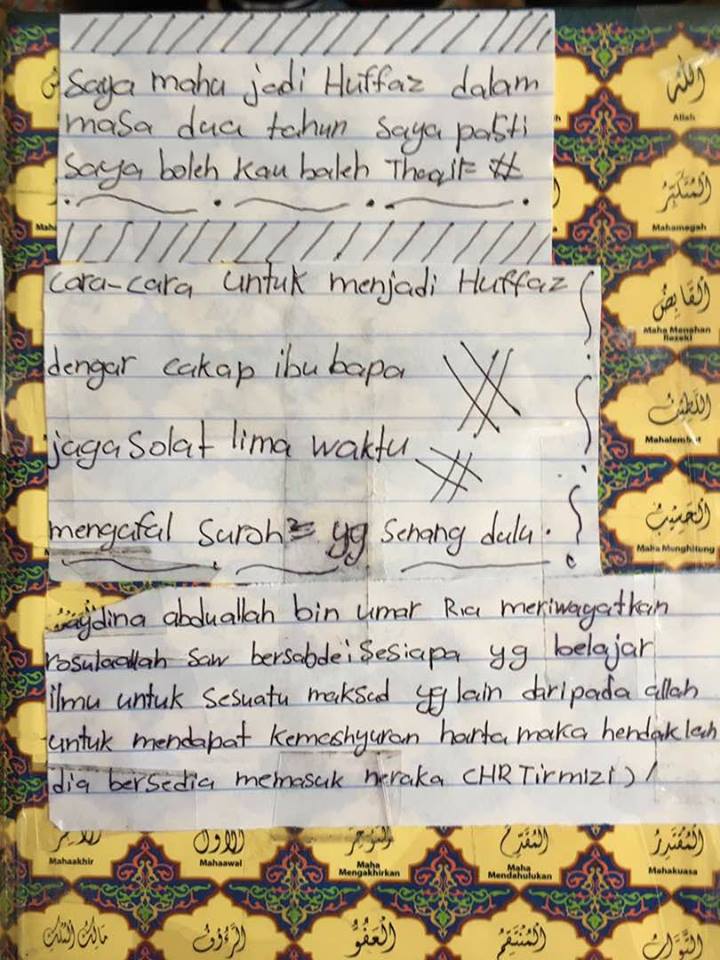 Saya mahu jadi Huffaz dalam
masa dua tahun saya pasti
saya boleh kau boleh Thoqif #
cara-cara untuk menjadi Huffaz
dengar cakap ibu bapa
jaga Solat lima waktu
mengafal suroh² yg senang dulu.
abduallah bin umar Ria meriwayatkan
rosulaallah saw bersabda Sesiapa yg belajar
ilmu untuk sesuatu maksud yg lain daripada allah
untuk mendapat kemeshyuran harta maka hendaklah
dia bersedia memasuk neraka (HR Tirmizi) /
الله
Allah
المتكبر
Mahamegah
القابض
Maha Menahan
Rezeki
اللطيف
Mahalembut
الحسيب
Maha Menghitung
الآخر
Mahaakhir
الأول
Mahaawal
المؤخر
Maha
Mengakhirkan
المقدم
Maha
Mendahulukan
المقتدر
Mahakuasa
مالك الملك
الرءوف
العفو
المنتقم
التواب